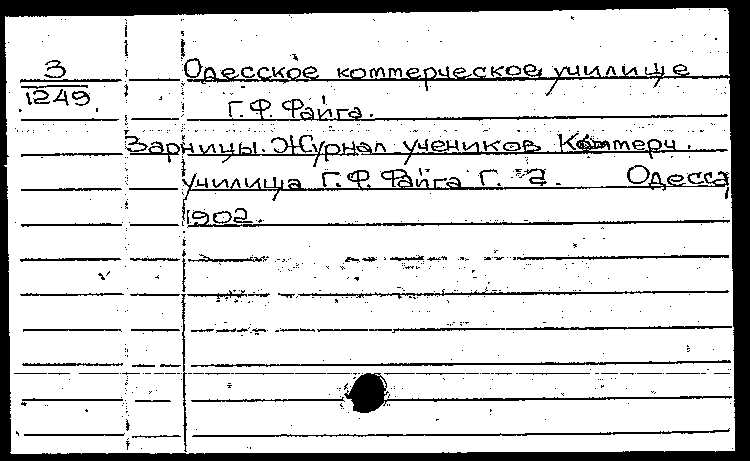 З Одесское коммерческое училище
1249 Г. Ф. Файга.
Зарницы. Журнал учеников Коммерч.
училища Г. Ф. Файга Г. 2. Одесса
1902.